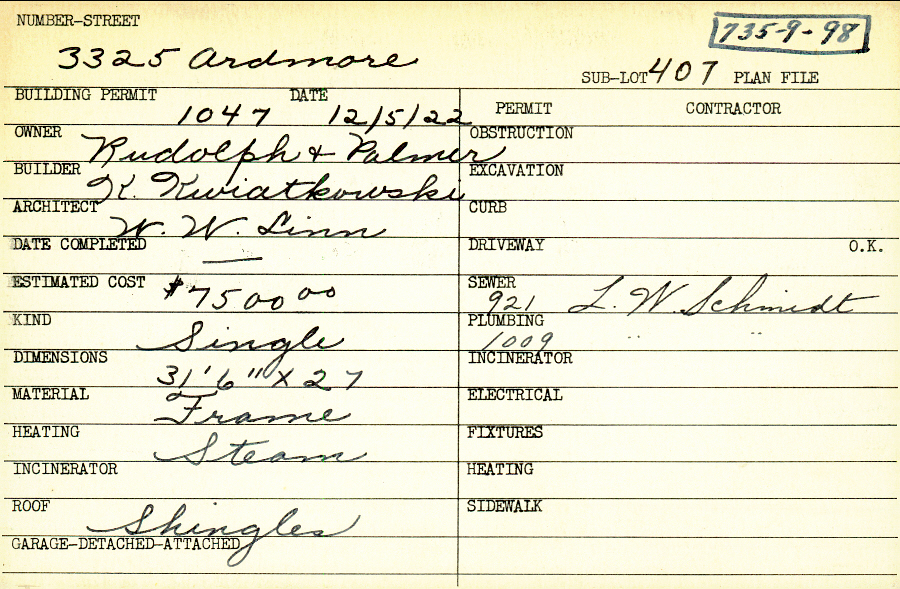 NUMBER-STREET
735-9-98
3325 Ardmore
SUB-LOT 407 PLAN FILE
BUILDING PERMIT DATE
1047 12/5/22
PERMIT CONTRACTOR
OWNER Rudolph & Palmer
OBSTRUCTION
BUILDER K. Kwiatkowski
EXCAVATION
ARCHITECT W. W. Linn
CURB
DATE COMPLETED —
DRIVEWAY O.K.
ESTIMATED COST $7500 00
SEWER 921 L. W. Schmidt
KIND Single
PLUMBING 1009 " "
DIMENSIONS 31'6" X 27
INCINERATOR
MATERIAL Frame
ELECTRICAL
HEATING Steam
FIXTURES
INCINERATOR
HEATING
ROOF Shingles
SIDEWALK
GARAGE-DETACHED-ATTACHED